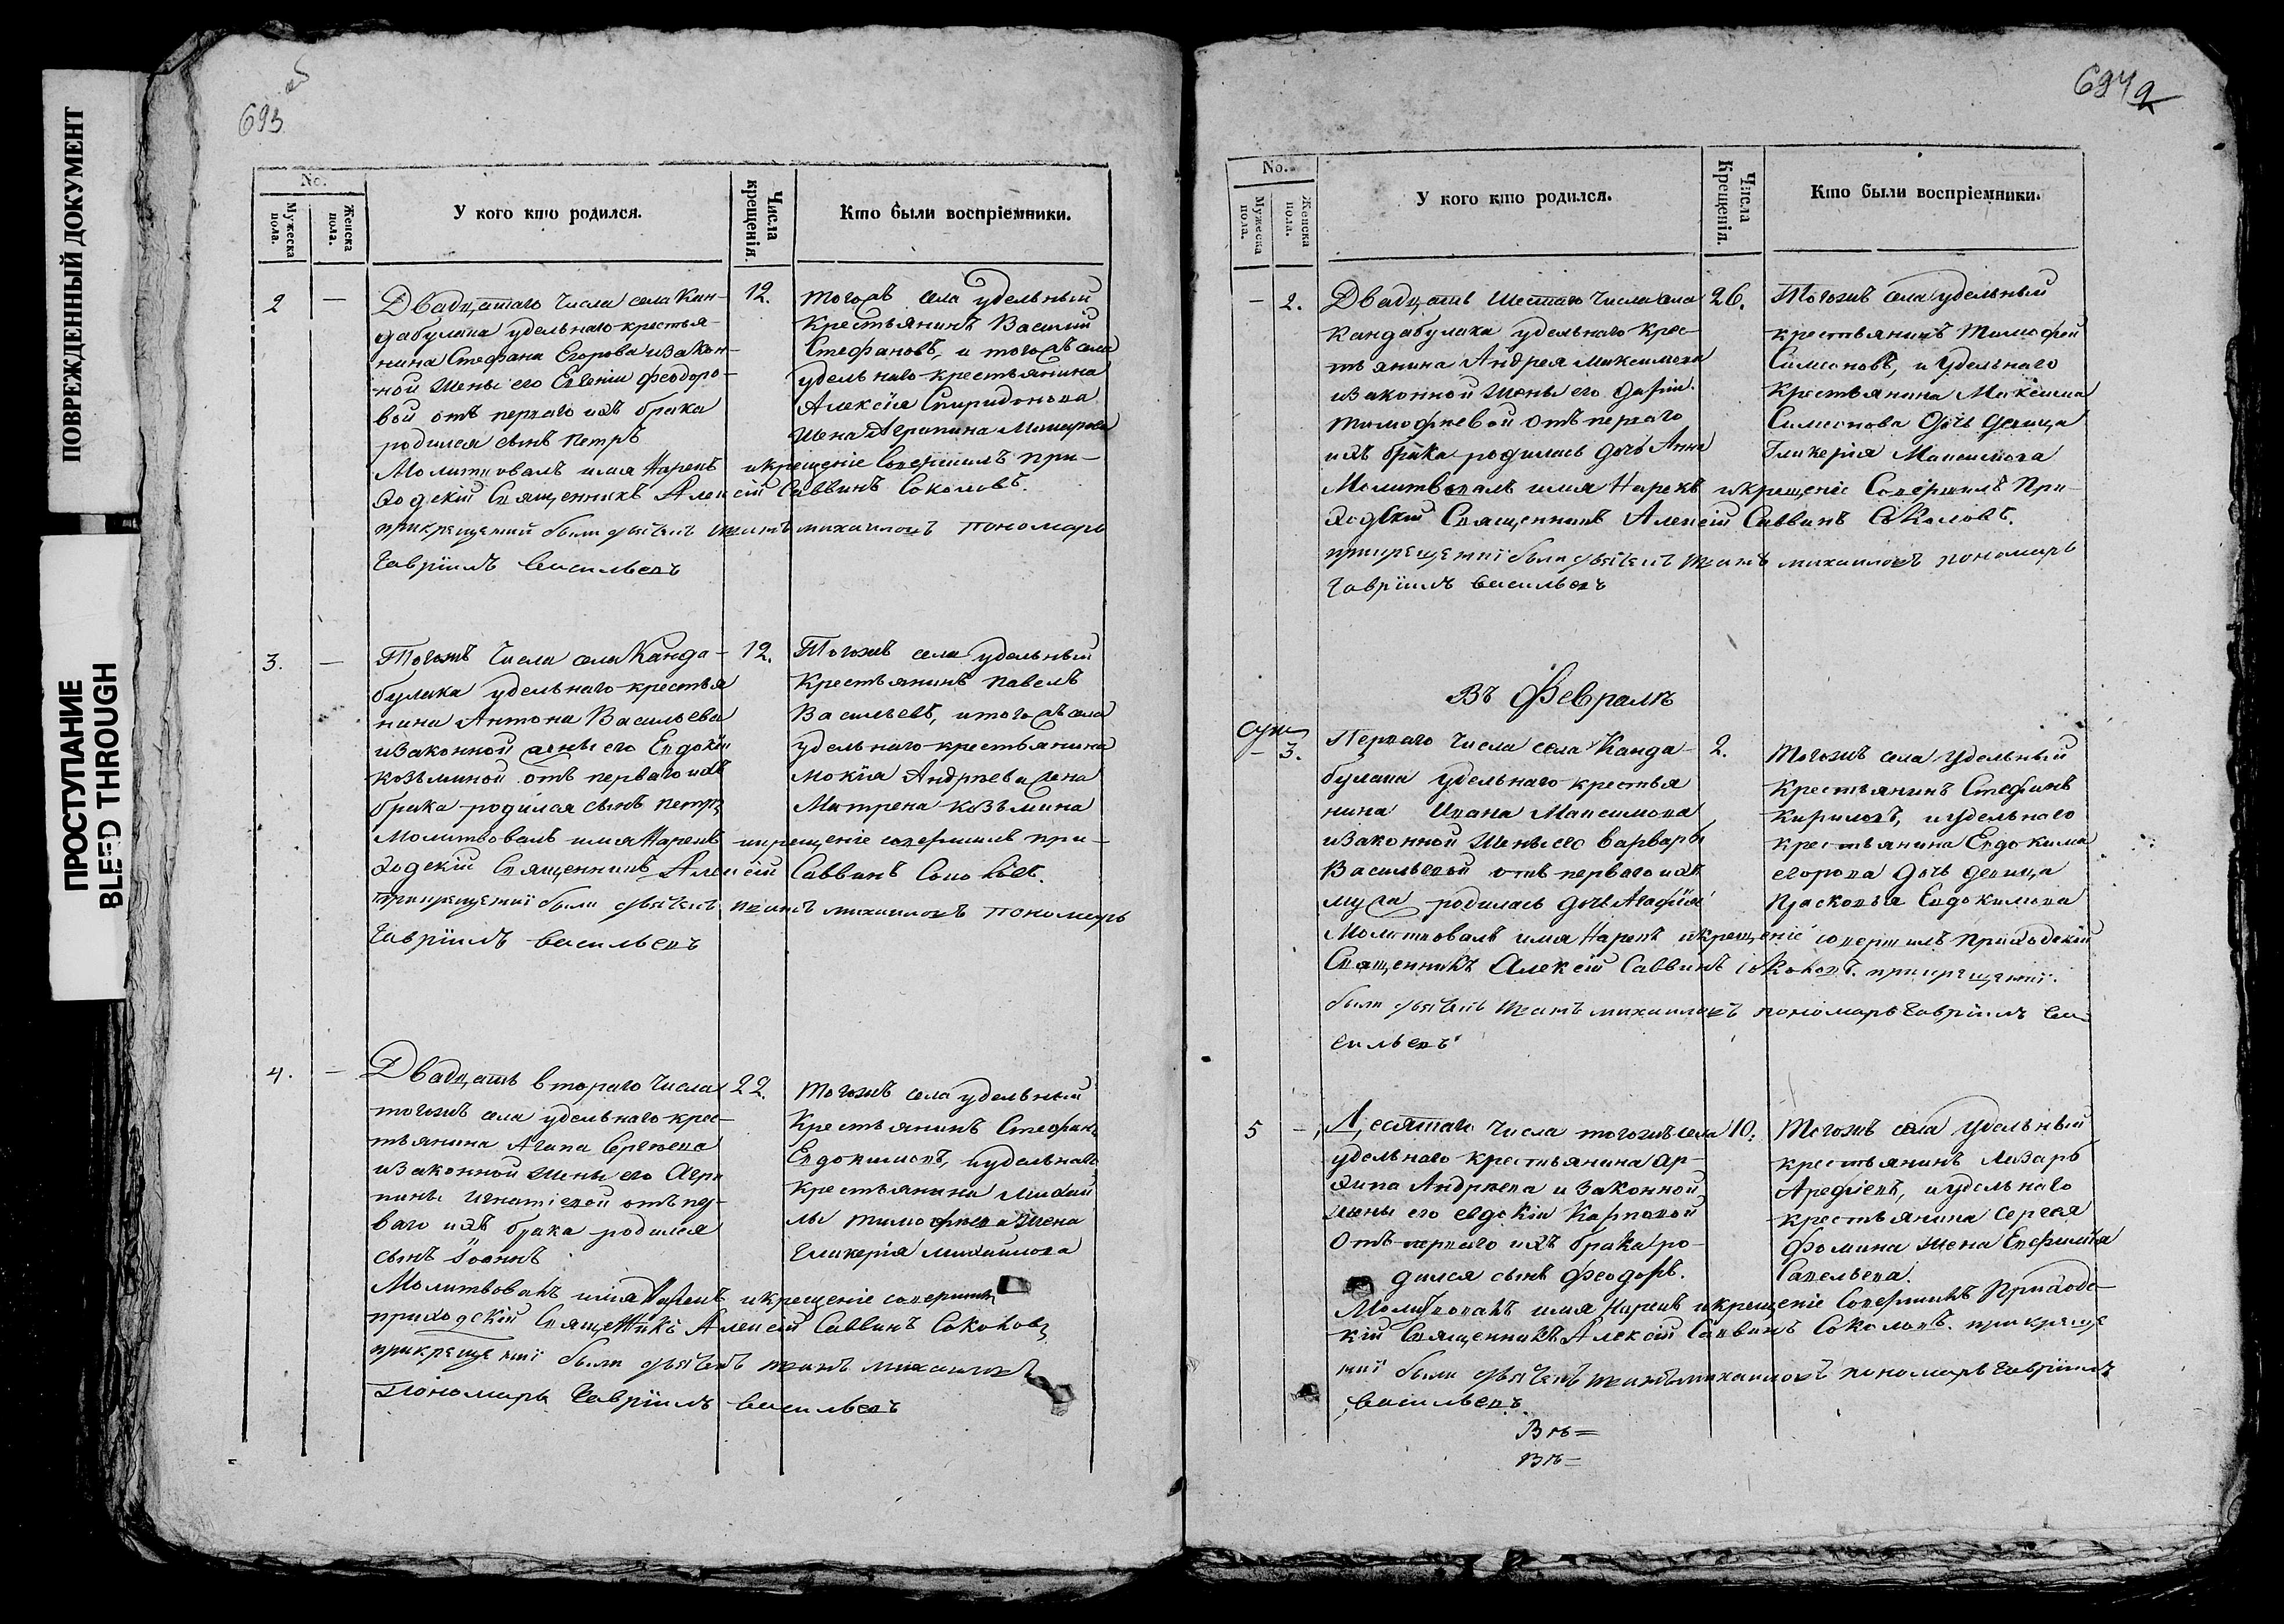 ПОВРЕЖДЕННЫЙ ДОКУМЕНТ
ПРОСТУПАНИЕ
BLEED THROUGH
693 об
No.
Мужеска пола.
Женска пола.
У кого кто родился.
Числа крещенія.
Кто были воспріемники.
2 — Двадцатаго числа села Кан-
дабулака удельнаго крестья-
нина Стефана Егорова и закон-
ной жены его Евгеніи Феодоро-
вой отъ перваго ихъ брака
родился сынъ Петръ
12. тогожъ села удельный
крестьянинъ Василій
Стефановъ, и тогожъ села
удельнаго крестьянина
Алексія Спиридонова
жена Агрипина
Молитвовалъ имя Нарекъ и крещеніе Совершилъ При-
ходскій Священникъ Алексій Саввинъ Соколовъ.
при крещении были дьячекъ Иванъ михаиловъ пономарь
Гавріилъ Васильевъ
3. — Тогожъ числа села Канда-
булака удельнаго крестья
нина Антона Васильева
и законной жены его Евдокіи
Козьминой отъ перваго ихъ
брака родился сынъ Петръ
12. Тогожъ села удельный
Крестьянинъ Павелъ
Васильевъ, и тогожъ села
удельнаго крестьянина
Мокія Андреева жена
Матрена Козьмина
Молитвовалъ имя Нарекъ и крещеніе совершилъ при-
ходскій Священникъ Алексій Саввинъ Соколовъ.
При крещении были дьячекъ Иванъ михаиловъ пономарь
Гавріилъ Васильевъ
4. — Двадцать втораго числа
тогожъ села удельнаго крес-
тьянина Агапа Сергеева
и законной жены его Агри
пины Игнатіевой отъ пер-
ваго ихъ брака родился
сынъ Іоаннъ
22. тогожъ села удельный
Крестьянинъ Стефанъ
Евдокимовъ, и удельнаго
Крестьянина Михаи
лы Тимофеева жена
Гликерія Михайлова
Молитвовалъ имя Нарекъ и крещеніе совершилъ
приходскій Священникъ Алексій Саввинъ Соколовъ
при крещении были дьячекъ Иванъ михаиловъ
Пономарь Гавріилъ Васильевъ
694
No.
Мужеска пола.
Женска пола.
У кого кто родился.
Числа Крещенія.
Кто были воспріемники.
— 2. Двадцать шестаго числа села
Кандабулака удельнаго крес-
тьянина Андрея Максимова
и законной жены его Даріи
Тимофеевой отъ перваго
ихъ брака родилась дочь Анна
26. Тогожъ села удельный
крестьянинъ Тимофей
Симеоновъ, и Удельнаго
Крестьянина Максима
Симеонова дочь девица
Гликерія Максимова
Молитвовалъ имя Нарекъ и крещеніе Совершилъ При-
ходскій Священникъ Алексій Саввинъ Соколовъ.
при крещении были дьячекъ Иванъ михаиловъ пономарь
Гавріилъ Васильевъ
Въ Феврале
— 3. Перваго числа села Канда-
булака удельнаго крестья
нина Ивана Максимова
и законной жены его Варвары
Васильевой отъ перваго ихъ
родилась дочь Агафія
2. Тогожъ села Удельный
Крестьянинъ Стефанъ
Кириловъ, и удельнаго
крестьянина Евдокима
Егорова дочь девица
Прасковья Евдокимова
Молитвовалъ имя Нарекъ и крещеніе совершилъ приходскій
Священникъ Алексій Саввинъ Соколовъ. при крещении
были дьячекъ Иванъ михаиловъ пономарь Гавріилъ Ва
сильевъ
5 — Десятаго числа тогожъ села
удельнаго крестьянина Ар-
хипа Андреева и законной
жены его Евдокіи Карповой
Отъ перваго ихъ брака ро-
дился сынъ Феодоръ.
10. Тогожъ села Удельный
крестьянинъ Лазарь
Арефіевъ, и удельнаго
крестьянина Сергея
Фомина жена Евфимія
Савельева.
Молитвовалъ имя Нарекъ и крещеніе Совершилъ Приходс-
кій Священникъ Алексій Саввинъ Соколовъ. при креще
нии были дьячекъ Иванъ михаиловъ пономарь Гавріилъ
Васильевъ
Въ=
Въ=